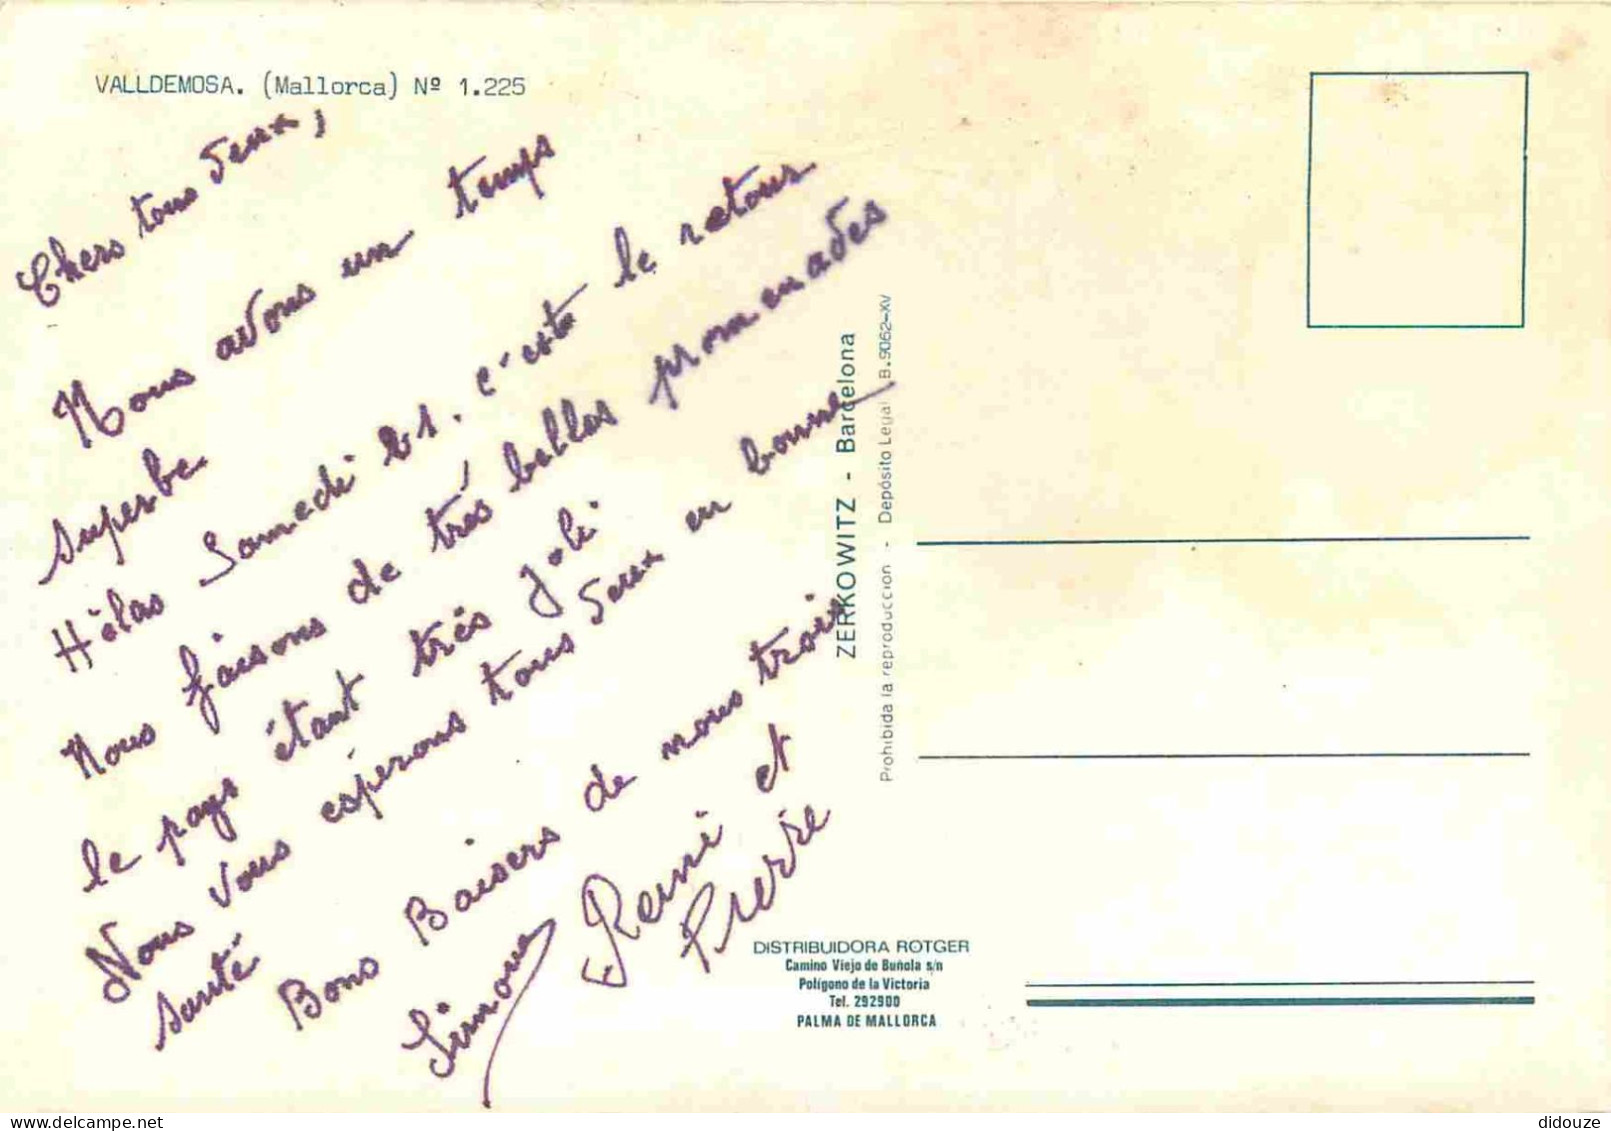 VALLDEMOSA. (Mallorca) Nº 1.225
Chers tous deux,
Nous avons un temps
superbe
Hélas Samedi 21. c'est le retour
Nous faisons de très belles promenades
le pays étant très joli
Nous vous espérons tous deux en bonne
santé
Bons Baisers de nous trois
Simone Rémi et
Pierre
ZERKOWITZ - Barcelona
Prohibida la reproduccion - Depósito Legal B.9062-XV
DISTRIBUIDORA ROTGER
Camino Viejo de Buñola s/n
Polígono de la Victoria
Tel. 292900
PALMA DE MALLORCA
didouze